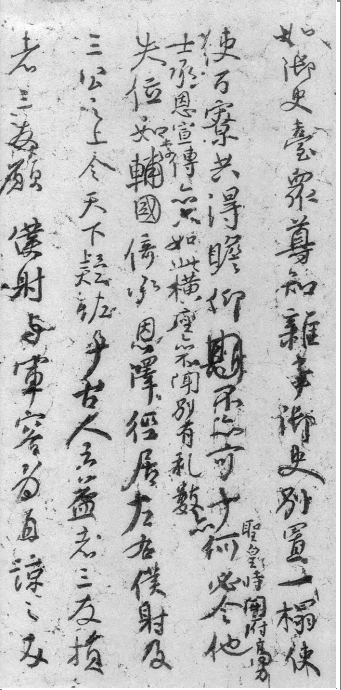 如御史臺衆尊知雜事御史別置一榻使
使百寮共得瞻仰不亦可乎何必令他
聖皇時開府高力
士承恩宣傳亦只如此橫座亦不聞別有礼數亦
失位如李輔國倚承恩澤徑居左右僕射及
三公之上令天下疑怪乎古人云益者三友損
者三友願僕射與軍容為直諒之友